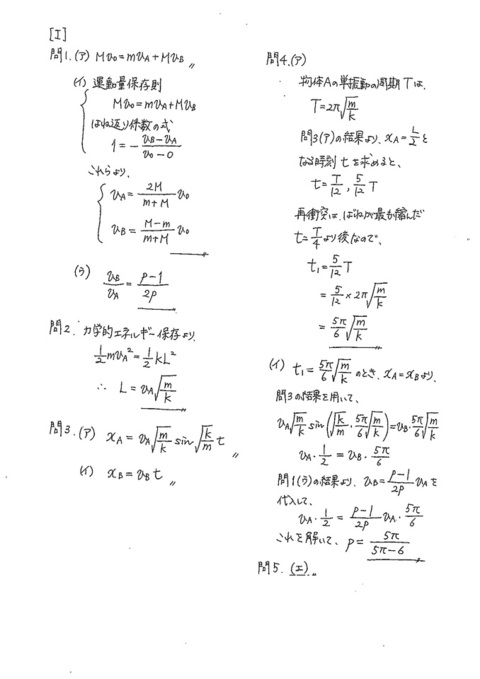 [I]
問1.(ア) Mv₀=mv_A+Mv_B 〃
(イ) 運動量保存則
Mv₀=mv_A+Mv_B
はね返り係数の式
1=-(v_B-v_A)/(v₀-0)
これらより、
v_A=2M/(m+M) v₀
v_B=(M-m)/(m+M) v₀
(う) v_B/v_A=(p-1)/2p
問2. 力学的エネルギー保存より、
1/2 mv_A²=1/2 kL²
∴ L=v_A√(m/k)
問3.(ア) x_A=v_A√(m/k) sin√(k/m) t 〃
(イ) x_B=v_B t 〃
問4.(ア)
物体Aの単振動の周期Tは、
T=2π√(m/k)
問3(ア)の結果より、x_A=L/2と
なる時刻 t を求めると、
t=T/12, 5/12 T
再衝突は、ばねが最も縮んだ
t=T/4より後なので、
t₁=5/12 T
=5/12×2π√(m/k)
=5π/6 √(m/k)
(イ) t₁=5π/6 √(m/k) のとき、x_A=x_Bより、
問3の結果を用いて、
v_A√(m/k) sin(√(k/m)・5π/6 √(m/k))=v_B・5π/6 √(m/k)
v_A・1/2=v_B・5π/6
問1(う)の結果より、v_B=(p-1)/2p v_Aを
代入して、
v_A・1/2=(p-1)/2p v_A・5π/6
これを解いて、p=5π/(5π-6)
問5. (エ) 〃